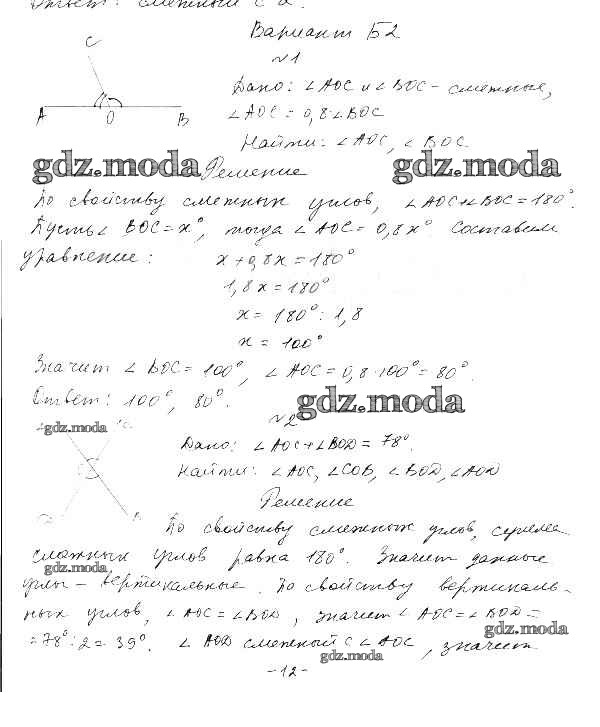 Ответ: смежный с
Вариант Б2
№1
C
Дано: ∠AOC и ∠BOC - смежные,
A O B
∠AOC = 0,8·∠BOC
Найти: ∠AOC, ∠BOC.
gdz.moda Решение gdz.moda
По свойству смежных углов, ∠AOC+∠BOC=180°.
Пусть ∠BOC=x°, тогда ∠AOC=0,8x° Составим
уравнение: x+0,8x=180°
1,8x=180°
x=180°:1,8
x=100°
Значит ∠BOC=100°, ∠AOC=0,8·100°=80°.
Ответ: 100°, 80°. gdz.moda
№2
gdz.moda
Дано: ∠AOC+∠BOD=78°.
Найти: ∠AOC, ∠COB, ∠BOD, ∠AOD
Решение
По свойству смежных углов, сумма
смежных углов равна 180°. Значит данные
gdz.moda
углы - вертикальные. По свойству вертикаль-
ных углов, ∠AOC=∠BOD, значит ∠AOC=∠BOD=
gdz.moda
=78°:2=39°. ∠AOD смежный с ∠AOC, значит
gdz.moda
-12-